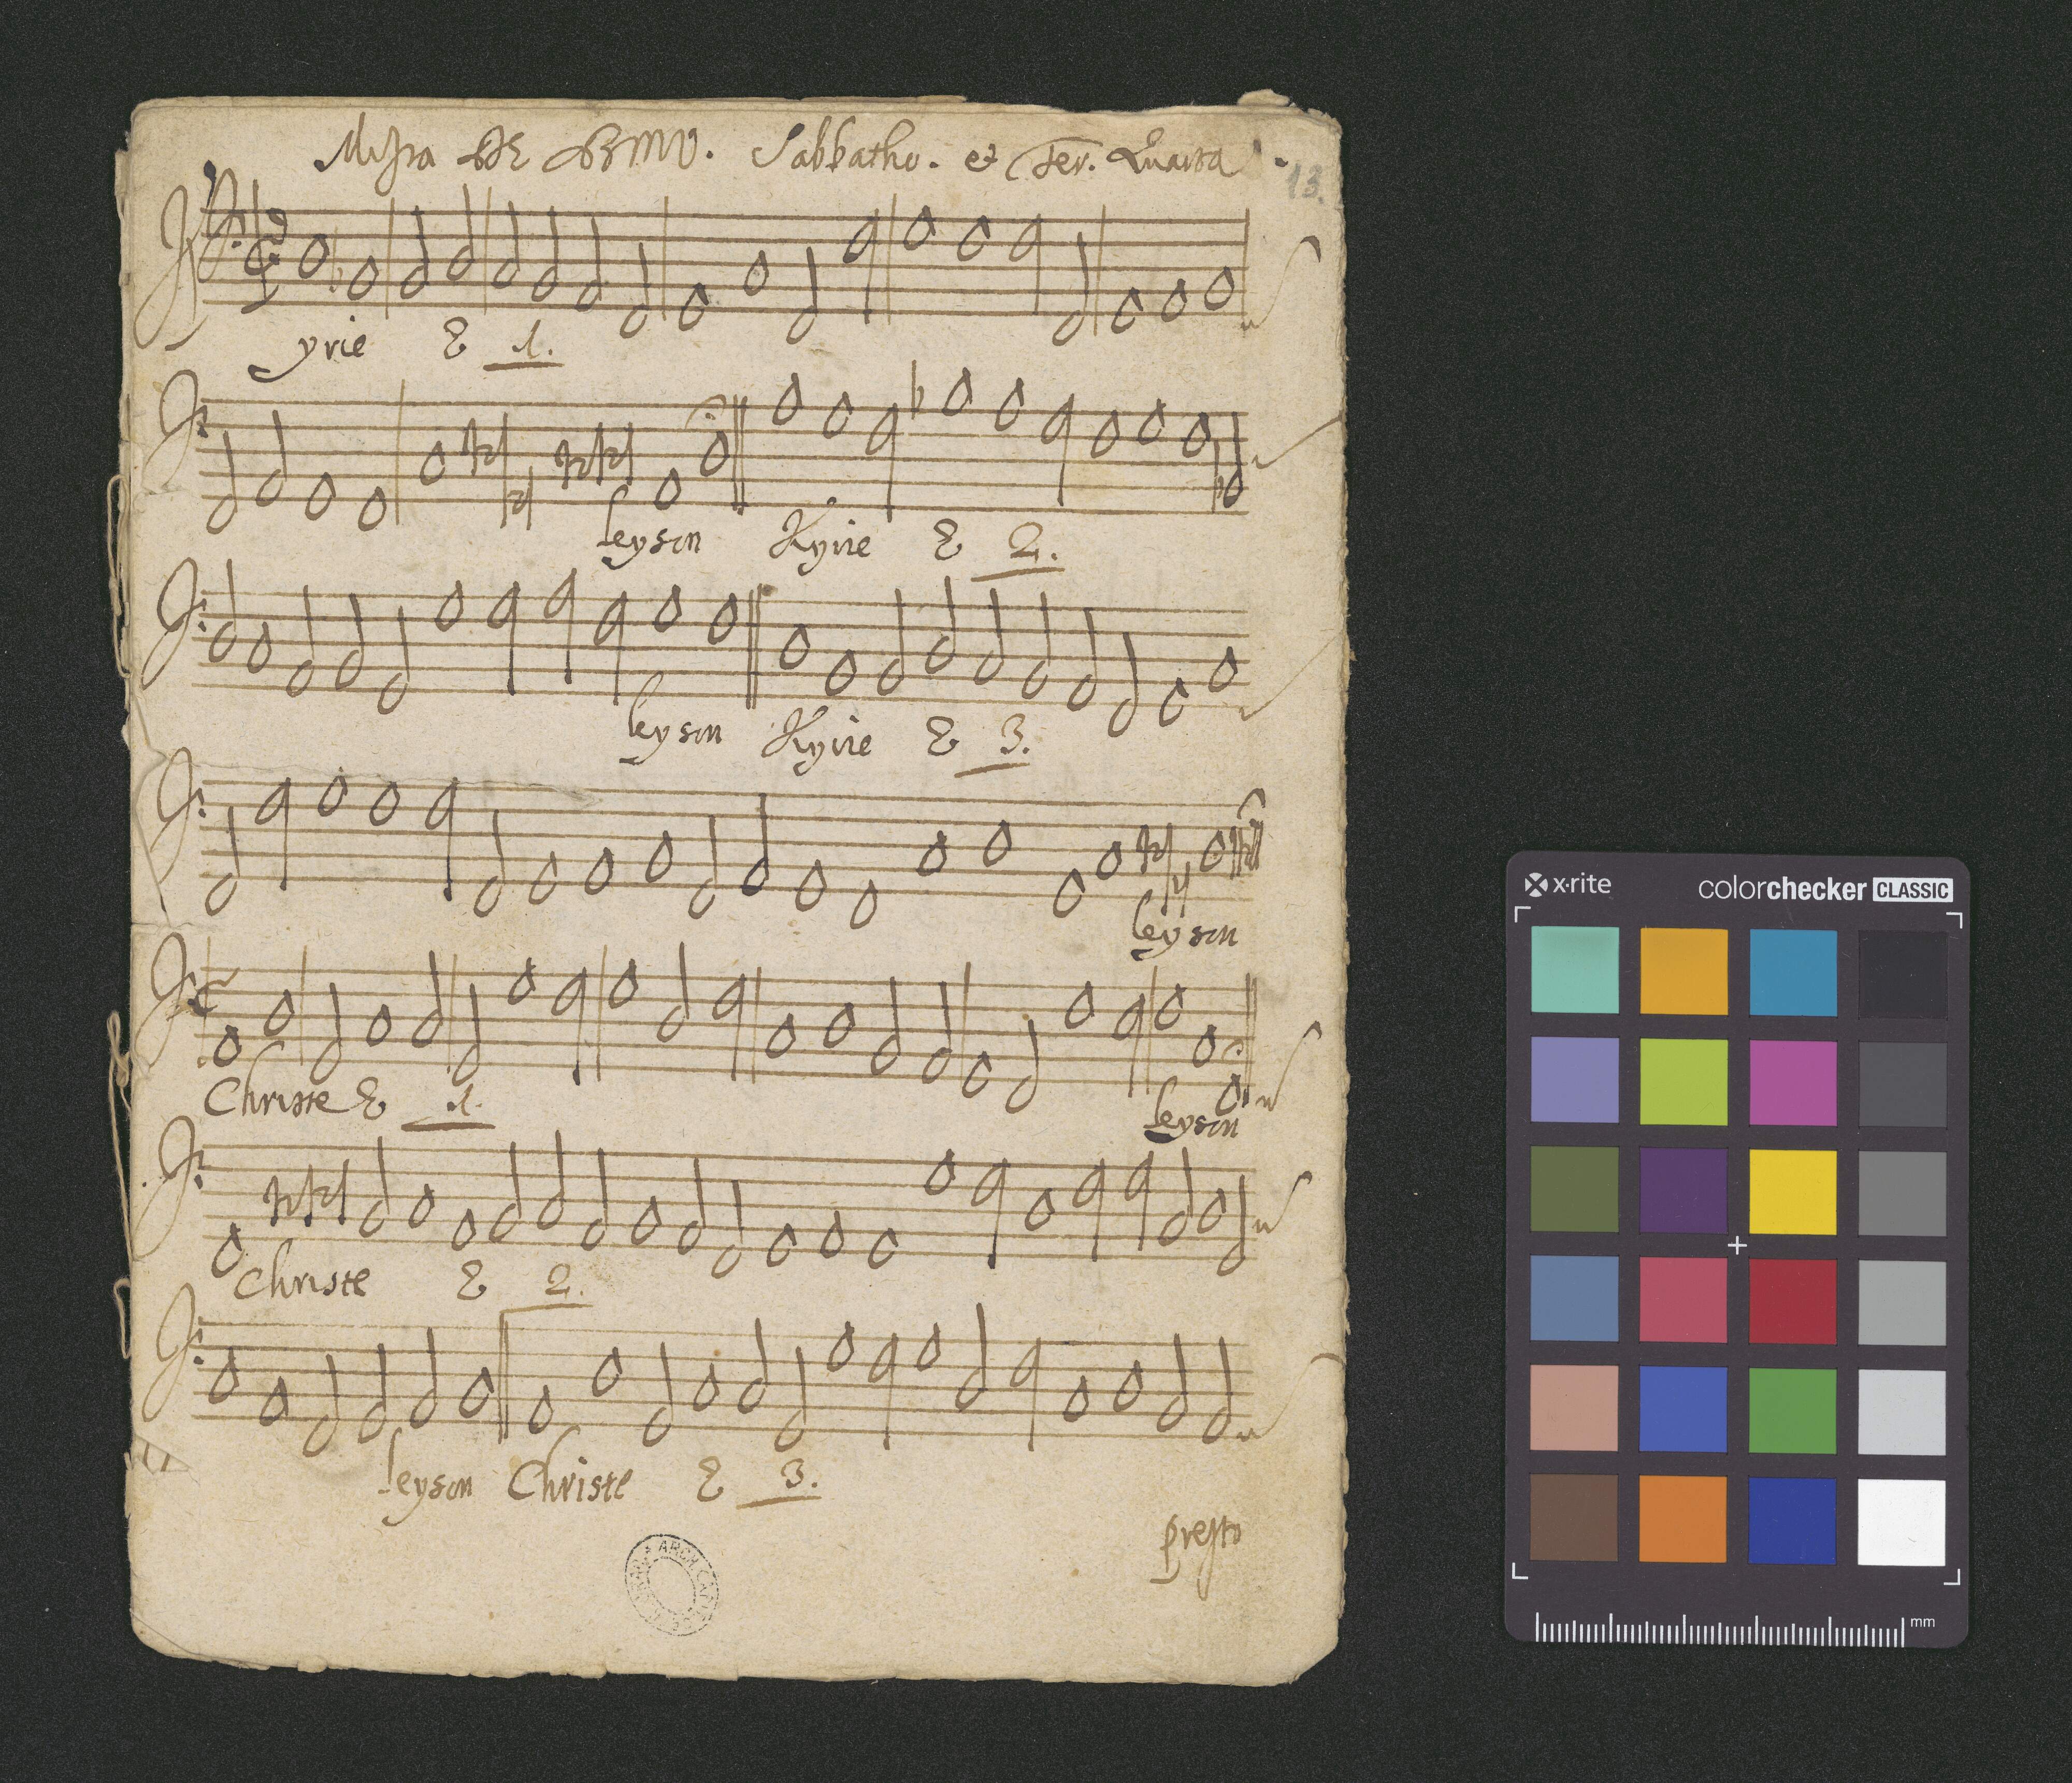 Missa DE BMV. Sabbatho. et Fer. Quarta
13.
Kyrie E 1.
leyson Kyrie E 2.
leyson Kyrie E 3.
leyson
Christe E 1. leyson
Christe E 2.
leyson Christe E 3.
presto
x-rite colorchecker CLASSIC
mm